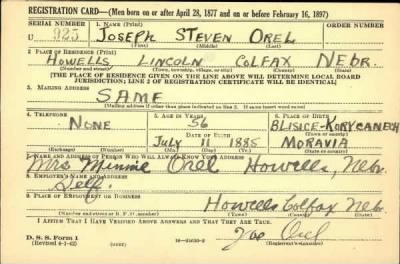 REGISTRATION CARD—(Men born on or after April 28, 1877 and on or before February 16, 1897)
SERIAL NUMBER 1. NAME (Print) ORDER NUMBER
U 925 JOSEPH STEVEN OREL
(First) (Middle) (Last)
2. PLACE OF RESIDENCE (Print)
HOWELLS, LINCOLN COLFAX NEBR.
(Number and street) (Town, township, village, or city) (County) (State)
[THE PLACE OF RESIDENCE GIVEN ON THE LINE ABOVE WILL DETERMINE LOCAL BOARD
JURISDICTION; LINE 2 OF REGISTRATION CERTIFICATE WILL BE IDENTICAL]
3. MAILING ADDRESS
SAME
[Mailing address if other than place indicated on line 2. If same insert word same]
4. TELEPHONE 5. AGE IN YEARS 6. PLACE OF BIRTH
NONE 56
DATE OF BIRTH
July 11 1885 MORAVIA
(Exchange) (Number) (Mo.) (Day) (Yr.) (State or country)
7. NAME AND ADDRESS OF PERSON WHO WILL ALWAYS KNOW YOUR ADDRESS
Mrs Minnie Orel Howells, Nebr.
8. EMPLOYER'S NAME AND ADDRESS
Self.
9. PLACE OF EMPLOYMENT OR BUSINESS
Howells Colfax Nebr.
(Number and street or R. F. D. number) (Town) (County) (State)
I AFFIRM THAT I HAVE VERIFIED ABOVE ANSWERS AND THAT THEY ARE TRUE.
D. S. S. Form 1
(Revised 4-1-42) (over)
Joe Orel
(Registrant's signature)